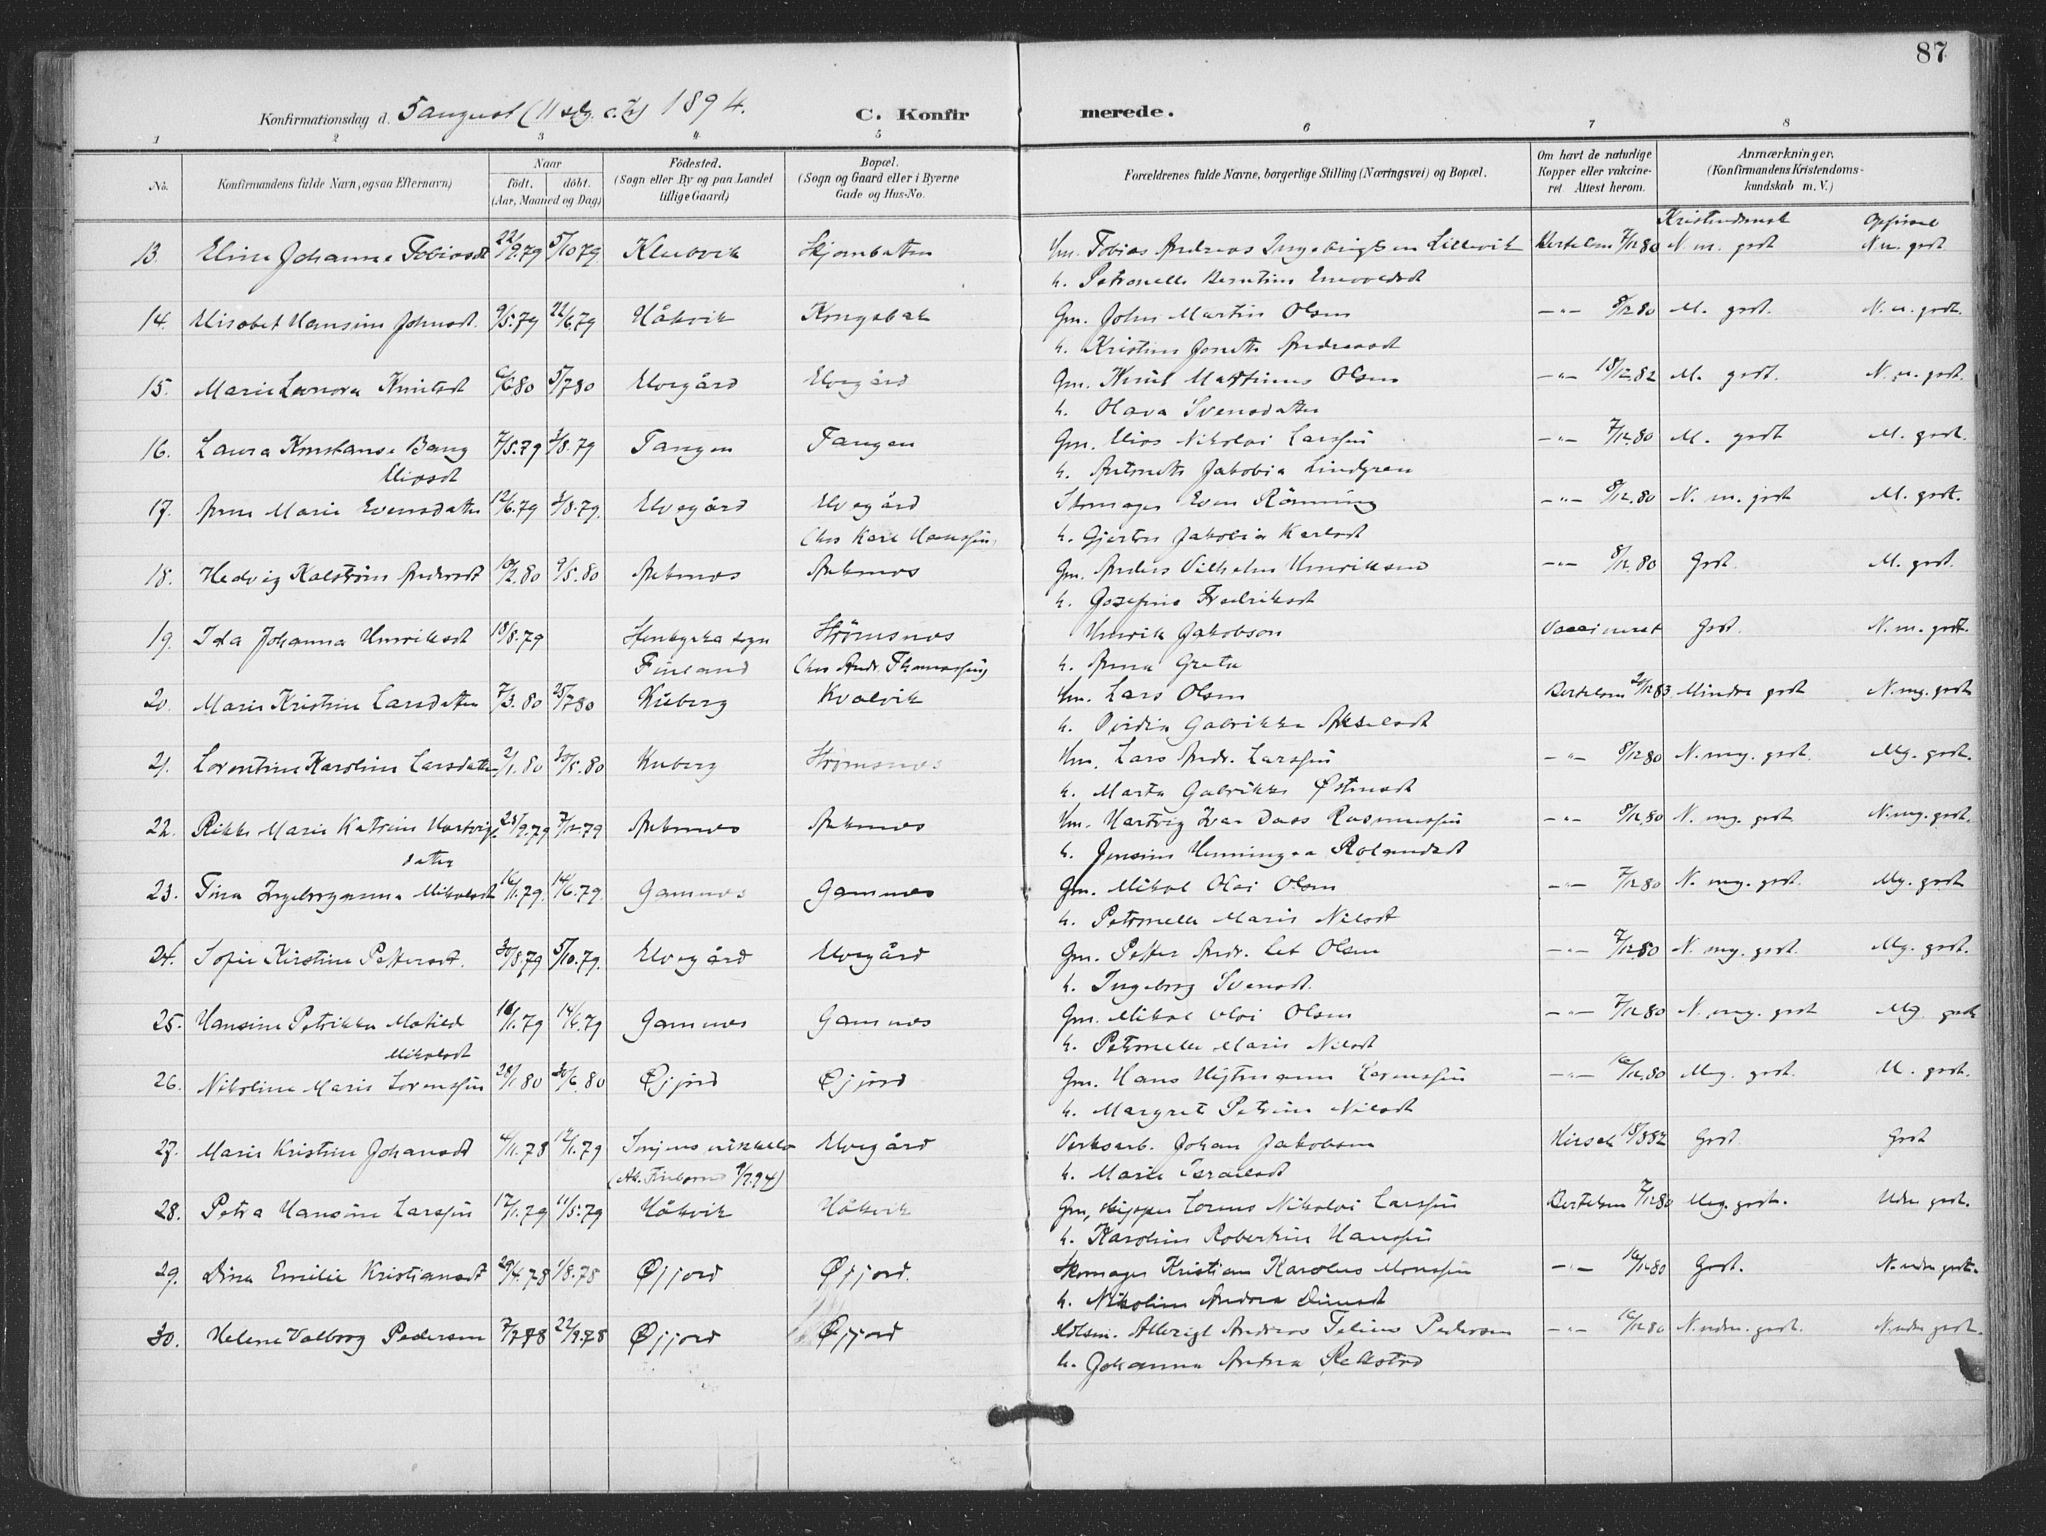 87
Konfirmationsdag d. 5 august 1894.
C. Konfir merede.
1 2 3 4 5 6 7 8
No. Konfirmandens fulde Navn, ogsaa Efternavn) Naar født. døbt. (Aar, Maaned og Dag) Födested. (Sogn eller By og paa Landet tillige Gaard) Bopæl. (Sogn og Gaard eller i Byerne Gade og Hus-No. Forældrenes fulde Navne, borgerlige Stilling (Næringsvei) og Bopæl. Om havt de naturlige Kopper eller vakcineret. Attest herom. Anmærkninger. (Konfirmandens Kristendomskundskab m. V.)
Kristendomsk Opførsel
13. Eline Johanna Tobiasdt 22/9.79 5/10 79 Klubvik Skjombotten Tobias Andreas Ingebrigtsen Lillevik Bertelsen 7/12 80 N. m. godt N. m. godt
h. Petronelle Berntine
14. Elisabet Hansine Johnsdt. 9/5.79 22/6.79 Håkvik Kongsbak Gm. John Martin Olsen —"— 8/12 80 M. godt. N. m. godt.
h. Kristine
15. Marie Lenora Knutsdt 6/6 80 5/7 80 Elvegård Elvegård Gm. Knut Martinus Olsen —"— 18/12.82 M. godt. N. m. godt.
h. Olava Svensdatter
16. Laura Konstanse Bang 7/5.79 3/8.79 Tangen Tangen Gm. Elias Nikolai Larssen —"— 7/12.80 M. godt M. godt.
Eliasdt h. Antonette Jakobia Lindgren
17. Anne Marie Evensdatter 12/6.79 3/8.79. Elvegård Elvegård Skomager Even Rönning —"— 8/12.80 N. m. godt M. godt.
Chos Karl Hanssen. h. Jakobia Karlsdt
18. Hedvig Kalström Andersdt 10/2.80 9/5.80 Ankenes Ankenes Gm. Anders Vilhelm Henriksen —"— 8/12.80 Godt. M. godt.
h. Josefine Fredriksdt
19. Ida Johanna Henriksdt 18/8.79 sogn Strømsnes Henrik Jakobson Vaccineret Godt. N. m. godt.
Finland Chos Andr. Thomassen h. Anna Greta
20. Marie Kristine Larsdatter 7/3.80 25/7 80 Kuberg Kvalvik Hm. Lars Olsen Bertelsen 20/12 83 Mindre godt N. mg. godt
h. Gabrikke Akselsdt
21. Lorentine Karoline Larsdatter 2/1.80 30/5.80 Kuberg Strømsnes Hm. Lars Andr. Larssen —"— 8/12 80 N. mg. godt. Mg. godt.
h. Marta Gabrikke Østensdt
22. Rikke Marie Katrine Hartvigs 28/9.79 7/12.79 Ankenes Ankenes Hm. Hartvig Ivar Daas Rasmussen —"— 8/12.80 N. mg. godt N. mg. godt.
datter h. Jensine Henningea
23. Tina Ingeborganna Mikalsdt 16/1.79. 14/6.79. Gamnes Gamnes Gm. Mikal Olai Olsen —"— 7/12 80 N. mg. godt. Mg. godt
h. Petronelle Marie Nilsdt
24. Sofie Kirstine Pettersdt. 30/8.79 5/10.79. Elvegård Elvegård Gm. Petter Andr. Olsen —"— 7/12.80 N. mg. godt. Mg. godt.
h. Ingeborg Svensdt.
25. Hansine Petrikka Matilde 16/1.79 14/6.79 Gamnes Gamnes Gm. Mikal Olai Olsen —"— 7/12 80 N. mg. godt Mg. godt
Mikalsdt h. Petronelle Marie Nilsdt
26. Nikoline Marie Lorenssen 28/1 80 20/6.80 Øjjord Øjjord Gm. Hans Lorenssen —"— 16/12.80 Meg. godt. M. godt.
h. Margret Petrine Nilsdt
27. Marie Kristine Johansdt 4/11.78 12/1.79 Elvegård Verksarb. Johan Jakobsen 18/8 82 Godt. Godt
(Att. 9/7.94) h. Marie
28. Petra Hansine Larssen 17/1.79 11/5.79 Håkvik Håkvik Gm, skipper Lorens Nikolai Larssen Bertelsen 7/12 80 Meg. godt. Udm. godt.
h. Karoline Robertine Hanssen
29. Dina Emilie Kristiansdt 29/4.78 1/8.78 Øjjord Øjjord. Skomager Kristian Karolus Monssen —"— 16/12 80 Godt. N. udm godt.
h. Nikoline Andrea
30. Helene Valborg Pedersen 7/7 78 22/9.78 Øjjord Øjjord Andreas Pedersen —"— 16/12 80 N. udm. godt. N. udm godt.
h. Johanna Andrea